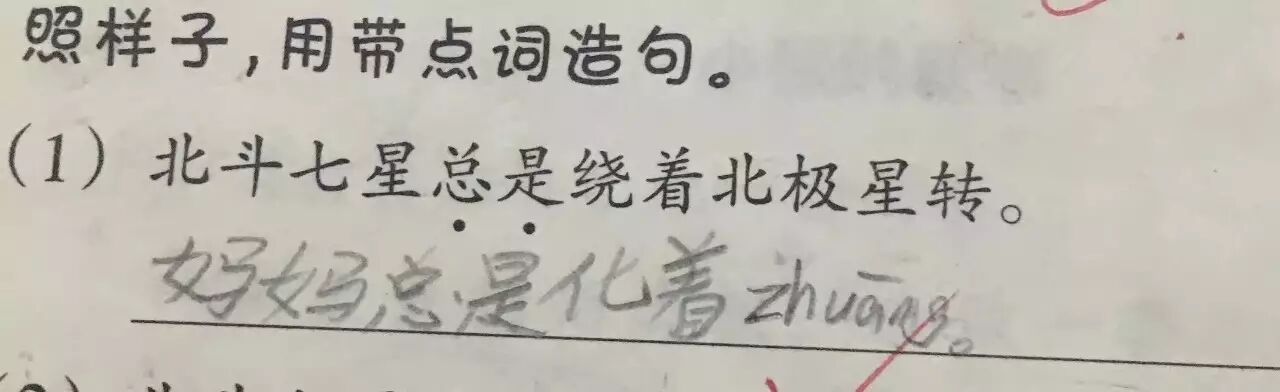 照样子,用带点词造句。
(1) 北斗七星总是绕着北极星转。
妈妈总是化着zhuāng。